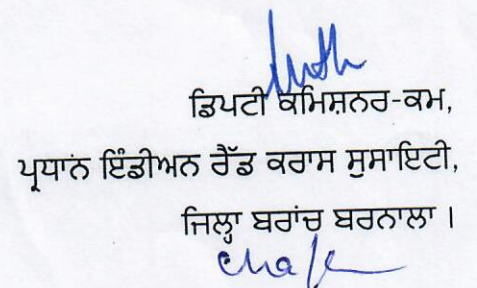 ਡਿਪਟੀ ਕਮਿਸ਼ਨਰ-ਕਮ,
ਪ੍ਰਧਾਨ ਇੰਡੀਅਨ ਰੈੱਡ ਕਰਾਸ ਸੁਸਾਇਟੀ,
ਜਿਲ੍ਹਾ ਬਰਾਂਚ ਬਰਨਾਲਾ ।